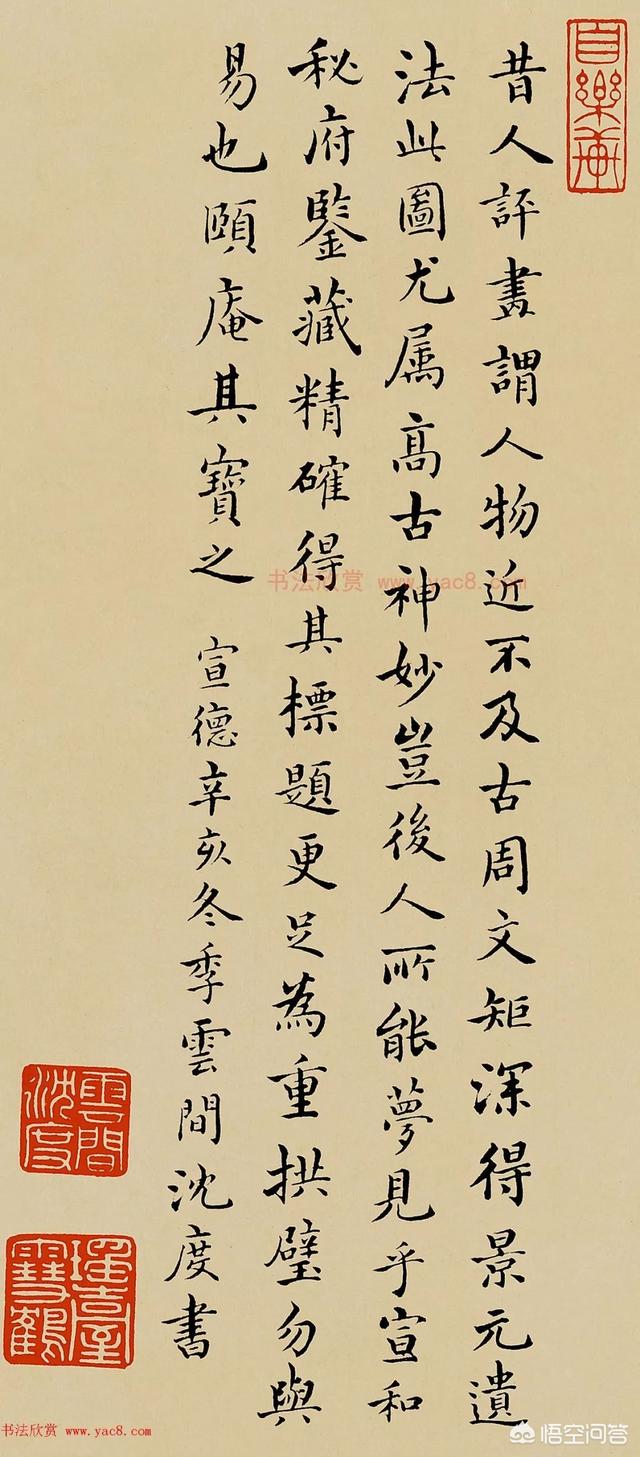 自樂
昔人評畫謂人物近不及古周文矩深得景元遺
法此圖尤属髙古神妙豈後人所能夢見乎宣和
秘府鑒藏精確得其標題更足為重拱璧勿與
易也頤庵其寶之 宣德辛亥冬季雲間沈度書
雲間沈度
书法欣赏 www.yac8.com
书法欣赏 www.yac8.com
悟空问答